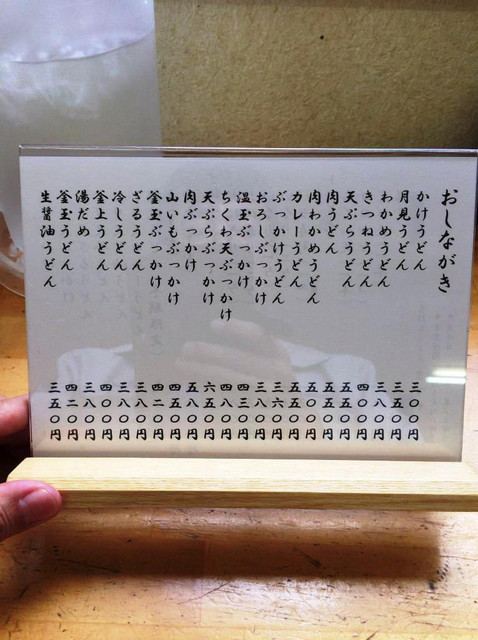 おしながき
かけうどん 三〇〇円
月見うどん 三五〇円
わかめうどん 三八〇円
きつねうどん 四〇〇円
天ぷらうどん 五五〇円
肉うどん 五五〇円
肉わかめうどん 五〇〇円
カレーうどん 五五〇円
ぶっかけうどん 三六〇円
おろしぶっかけ 三八〇円
温玉ぶっかけ 四三〇円
ちくわ天ぶっかけ 四八〇円
天ぷらぶっかけ 六五〇円
肉ぶっかけ 五八〇円
山いもぶっかけ 四五〇円
釜玉ぶっかけ 四二〇円
ざるうどん 三八〇円
冷しうどん 三八〇円
釜上うどん 四〇〇円
湯だめ 三八〇円
釜玉うどん 四二〇円
生醤油うどん 三五〇円